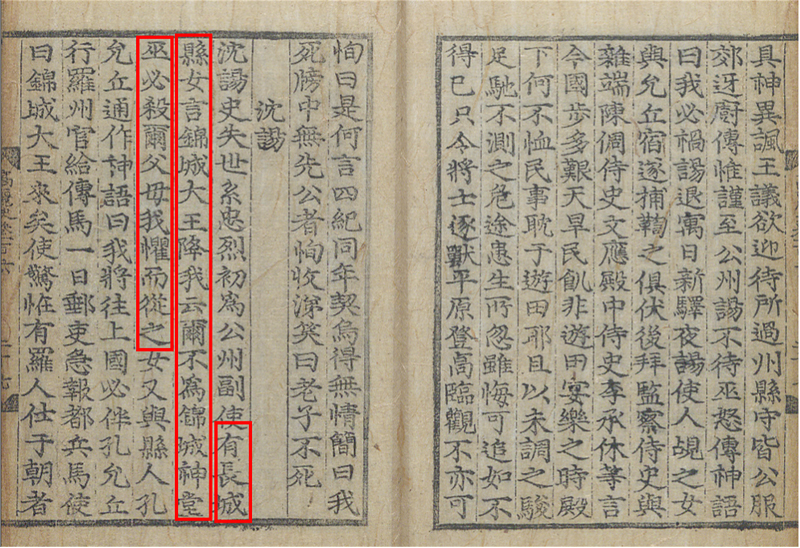 恂曰是何言四紀同年契烏得無情簡曰我
死牓中無先公者恂收淚笑曰老子不死
沈諹
沈諹史失世系忠烈初爲公州副使有長城
縣女言錦城大王降我云爾不爲錦城神堂
巫必殺爾父母我懼而從之女又與縣人孔
允丘通作神語曰我將往上國必伴孔允丘
行羅州官給傳馬一日郵吏急報都兵馬使
曰錦城大王來矣使驚恠有羅人仕于朝者
具神異諷王議欲迎待所過州縣守皆公服
郊迓廚傳惟謹至公州諹不待巫怒傳神語
曰我必禍諹退寓日新驛夜諹使人覘之女
與允丘宿遂捕鞫之俱伏後拜監察侍史與
雜端陳倜侍史文應殿中侍史李承休等言
今國步多艱天旱民飢非遊田宴樂之時殿
下何不恤民事耽于遊田耶且以未調之駿
足馳不測之危途患生所忽雖悔可追如不
得已只令將士逐獸平原登高臨觀不亦可